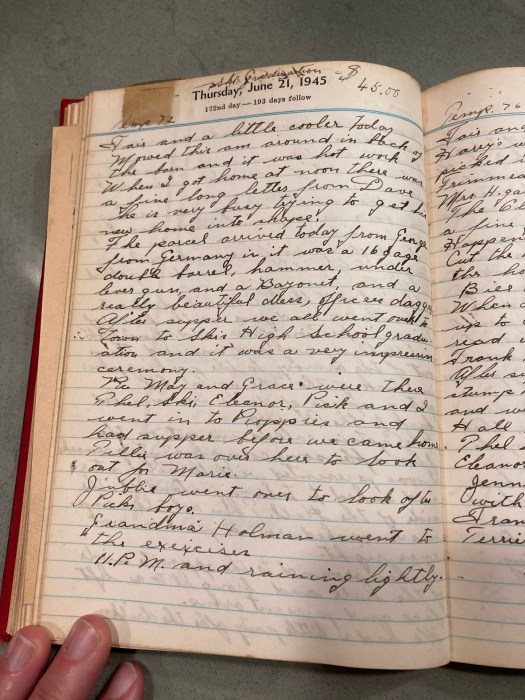 Ski's Graduation - $ 45.00
Thursday, June 21, 1945
172nd day — 193 days follow
Temp. 72
Fair and a little cooler today
Mowed this am around in back of
the barn and it was hot work
When I got home at noon there was
a fine long letter from Dave
he is very busy trying to get his
new home into shape.
The parcel arrived today from George
from Germany in it was a 16 gage
double barrel, hammer, under
lever gun, and a Bazonet, and a
really beautiful dress, officers dagger
After supper we all went over to
Town to Skis High School gradu-
ation and it was a very impressive
ceremony.
May and Grace were there
Phel, Ski, Eleanor, Pick and I
went in to and
had supper before we came home.
was over here to look
out for Marie.
went over to look after
Picks boys.
Grandma Holman went to
the exixcises
11.P.M. and raining lightly.
Temp. 76
Fair and
Harry's
picked
Trimmed
Mrs H.
The
a fine
Happen
Cut the
the ho
When
up to
read
Frank
After su
stump
and w
Hall
Phel
Eleanor
Jenn
with
Fran
Terrie